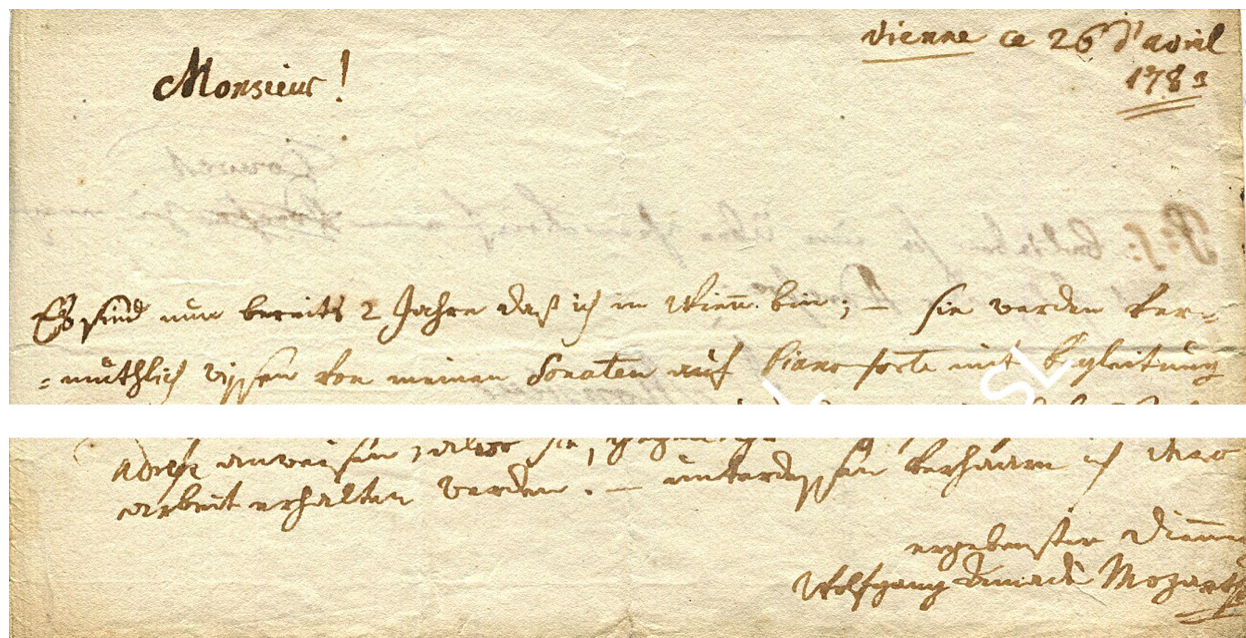 Vienne ce 26 d'avril
1783
Monsieur!
Es sind nun bereits 2 Jahre daß ich in Wien̄ bin; – sie werden ver=
=muthlich wissen von meinen Sonaten auf Piano forte mit begleitung
adresse anweisen, alwo sie,
arbeit erhalten werden. – unterdessen verharre ich dero
ergebenster Diener
Wolfgang Amadè Mozart